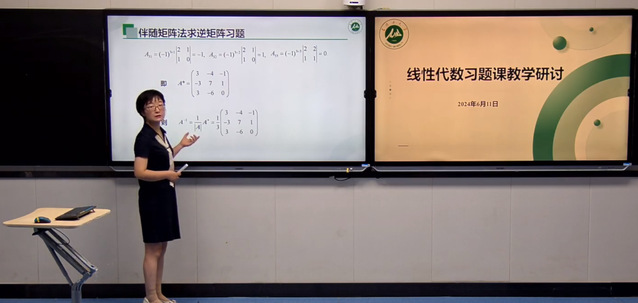 伴随矩阵法求逆矩阵习题
A₁₃ = (-1)¹⁺³ |2 1; 1 0| = -1, A₂₃ = (-1)²⁺³ |2 1; 1 0| = 1, A₃₃ = (-1)³⁺³ |2 2; 1 1| = 0
即 A* = (3 -4 -1; -3 7 1; 3 -6 0)
则 A⁻¹ = 1/|A| A* = 1/3 (3 -4 -1; -3 7 1; 3 -6 0)
线性代数习题课教学研讨
2024年6月11日